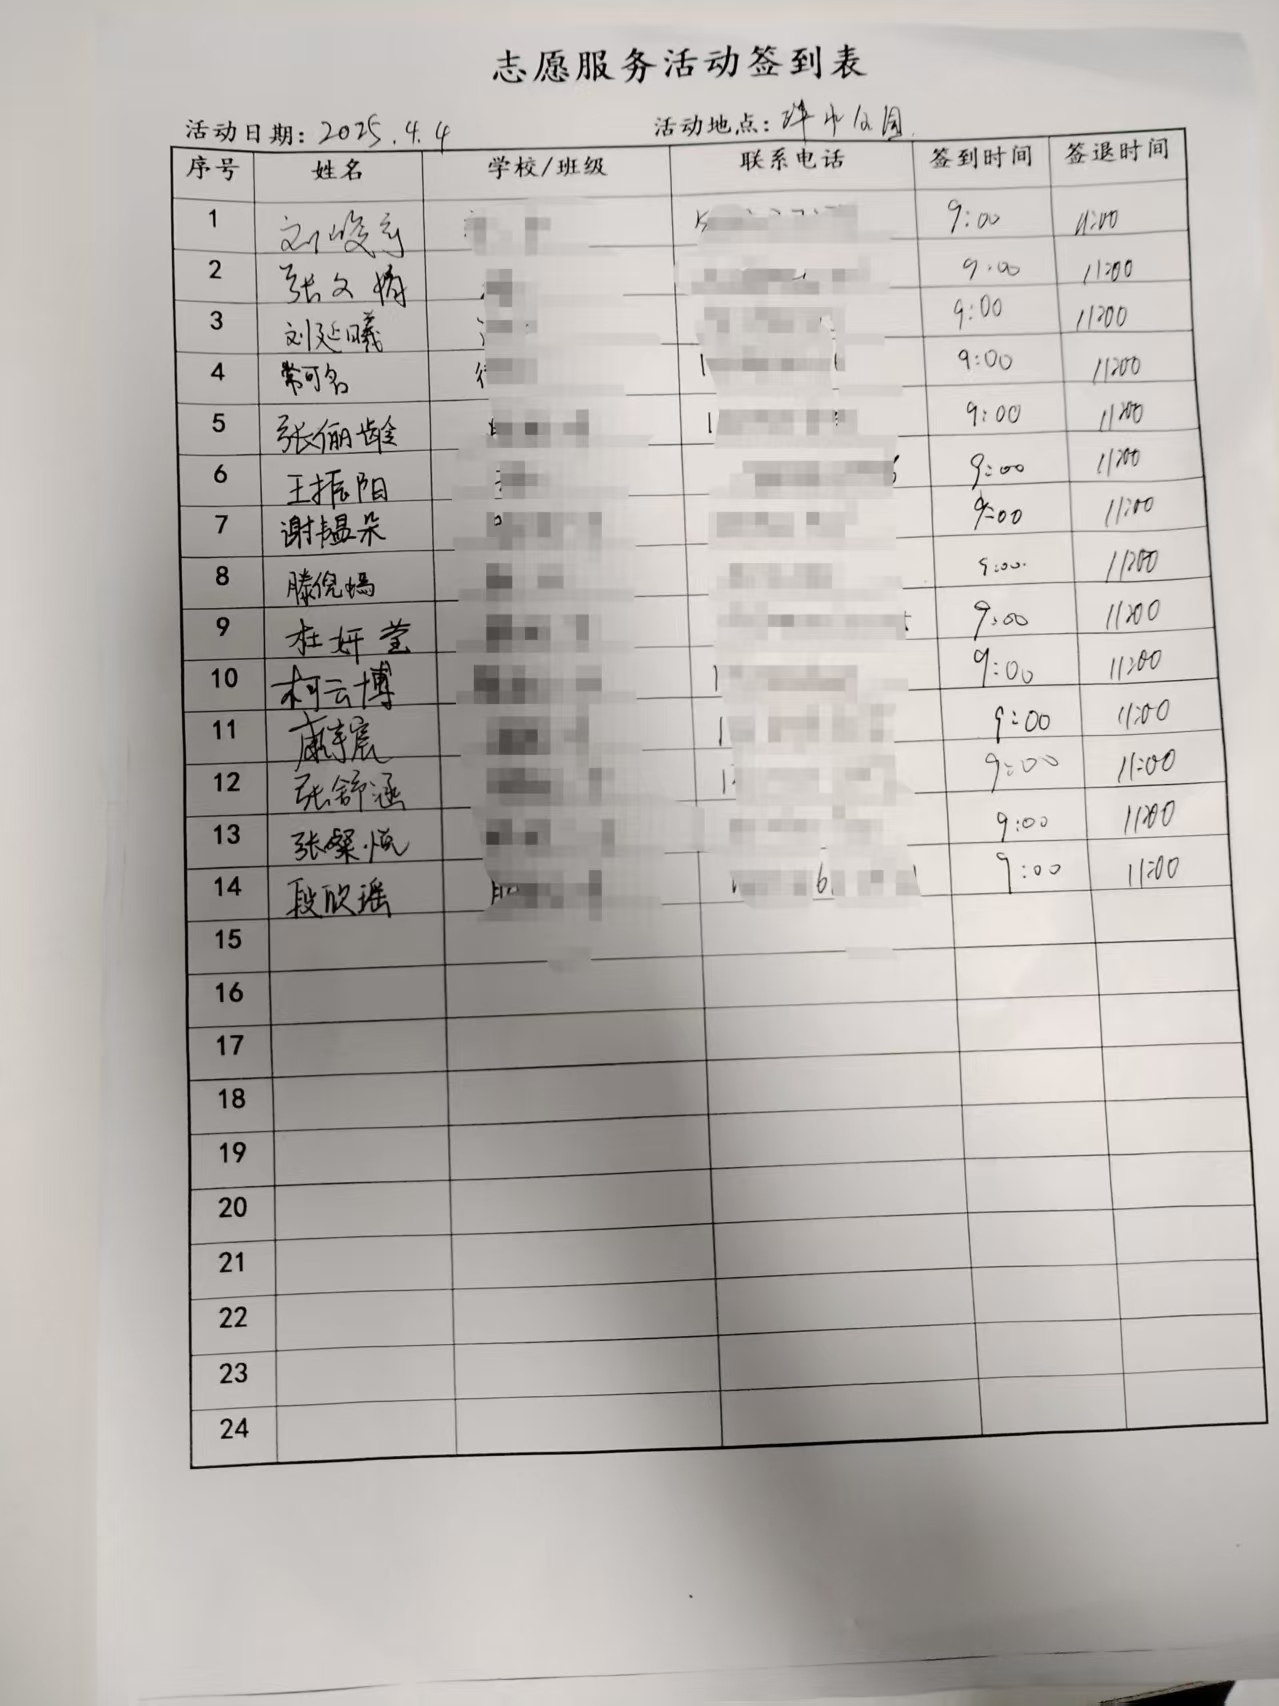 志愿服务活动签到表
活动日期: 2025.4.4 活动地点: 公园
序号 姓名 学校/班级 联系电话 签到时间 签退时间
1 刘峻 9:00 11:00
2 张文 9:00 11:00
3 刘延曦 9:00 11:00
4 常可名 9:00 11:00
5 张俪龄 9:00 11:00
6 王振阳 9:00 11:00
7 谢韫朵 9:00 11:00
8 滕倪嫣 9:00 11:00
9 杜妍莹 9:00 11:00
10 柯云博 9:00 11:00
11 宸 9:00 11:00
12 张舒涵 9:00 11:00
13 张璨悦 9:00 11:00
14 段欣瑶 9:00 11:00
15
16
17
18
19
20
21
22
23
24